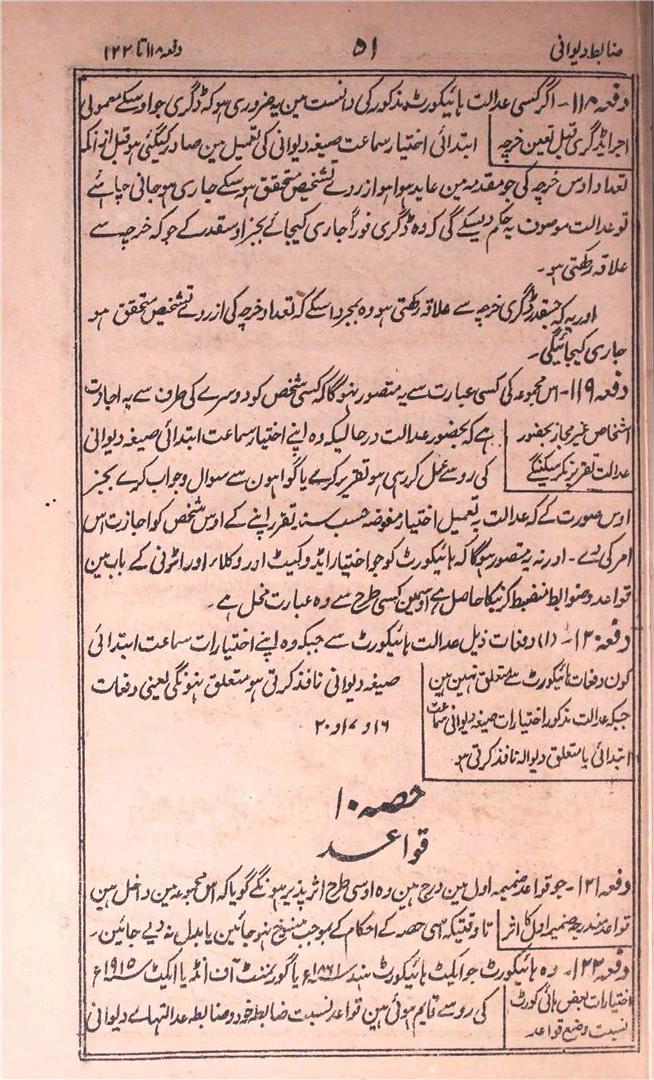 ضابطہ دیوانی ۵۱ دفعہ ۱۱۸ تا ۱۲۲
دفعہ ۱۱۸- اگر کسی عدالت ہائیکورٹ مذکور کی دانست مین یہ ضروری ہو کہ ڈگری جو اوسکے معمولی
اجراء ڈگری قبل تعین خرچہ
ابتدائی اختیار سماعت صیغہ دیوانی کی تعمیل مین صادر کیگئی ہو قبل ازانکہ
تعداد اوس خرچہ کی جو مقدمہ مین عاید ہوا ہو ازروے تشخیص متحقق ہو سکے جاری ہو جانی چاہئے
تو عدالت موصوف یہ حکم دیسکے گی کہ وہ ڈگری فوراً جاری کیجائے بجز اوسقدر کے جو کہ خرچہ سے
علاقہ رکھتی ہو۔
اور یہ کہ جسقدر ڈگری خرچہ سے علاقہ رکھتی ہو وہ بمجرد اسکے کہ تعداد خرچہ کی ازروے تشخیص متحقق ہو
جاری کیجائیگی۔
دفعہ ۱۱۹- اس مجموعہ کی کسی عبارت سے یہ متصور نہوگا کہ کسی شخص کو دوسرے کی طرف سے یہ اجازت
اشخاص غیر مجاز بحضور
عدالت تقریر نکر سکینگے
ہے کہ بحضور عدالت درحالیکہ وہ اپنے اختیار سماعت ابتدائی صیغہ دیوانی
کی رو سے عمل کر رہی ہو تقریر کرے یا گواہون سے سوال و جواب کرے بجز
اوس صورت کے کہ عدالت بہ تعمیل اختیار مفوضہ حسب سند تقرر اپنے کے اوس شخص کو اجازت اس
امر کی دے۔ اور نہ یہ متصور ہوگا کہ ہائیکورٹ کو جو اختیار ایڈوکیٹ اور وکلاء اور اٹرنی کے باب مین
قواعد و ضوابط منضبط کرنیکا حاصل ہے اوسمین کسی طرح سے وہ عبارت مخل ہے۔
دفعہ ۱۲۰- (۱) دفعات ذیل عدالت ہائیکورٹ سے جبکہ وہ اپنے اختیارات سماعت ابتدائی
کون دفعات ہائیکورٹ سے متعلق نہین ہین
جبکہ عدالت مذکور اختیارات صیغہ دیوانی سماعت
ابتدائی یا متعلق دیوالہ نافذ کرتی ہو
صیغہ دیوانی نافذ کرتی ہو متعلق نہونگی یعنی دفعات
۱۶ و ۱۷ و ۲۰
حصہ ۱۰
قواعد
دفعہ ۱۲۱- جو قواعد ضمیمہ اول مین درج ہین وہ اوسی طرح اثر پذیر ہونگے گویا کہ اس مجموعہ مین داخل ہین
قواعد مندرجہ ضمیمہ اول کا اثر
تا وقتیکہ اسی حصہ کے احکام کے بموجب منسوخ نہو جائین یا بدل نہ دیے جائین۔
دفعہ ۱۲۲- وہ ہائیکورٹ جو ایکٹ ہائیکورٹ ہند ۱۸۶۱ء یا گورنمنٹ آف انڈیا ایکٹ ۱۹۱۵ء
اختیارات بعض ہائی کورٹ
نسبت وضع قواعد
کی رو سے قایم ہوئی ہین قواعد نسبت ضابطہ خود و ضابطہ عدالتہاے دیوانی